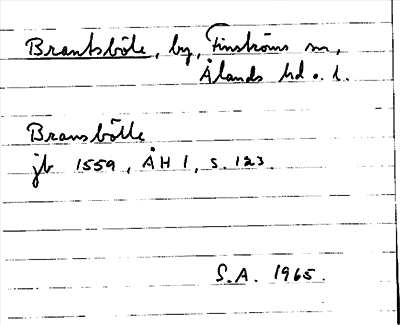 Brantsböle, by, Finströms sn,
Ålands hd o. l.
Bransbölle
jb 1559, ÅH 1, s. 123.
S.A. 1965.